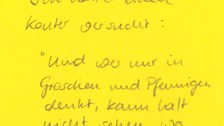 Konter versucht:
"Und wer nur in
Groschen und Pfennigen
denkt, kann halt
nicht sehen, wo